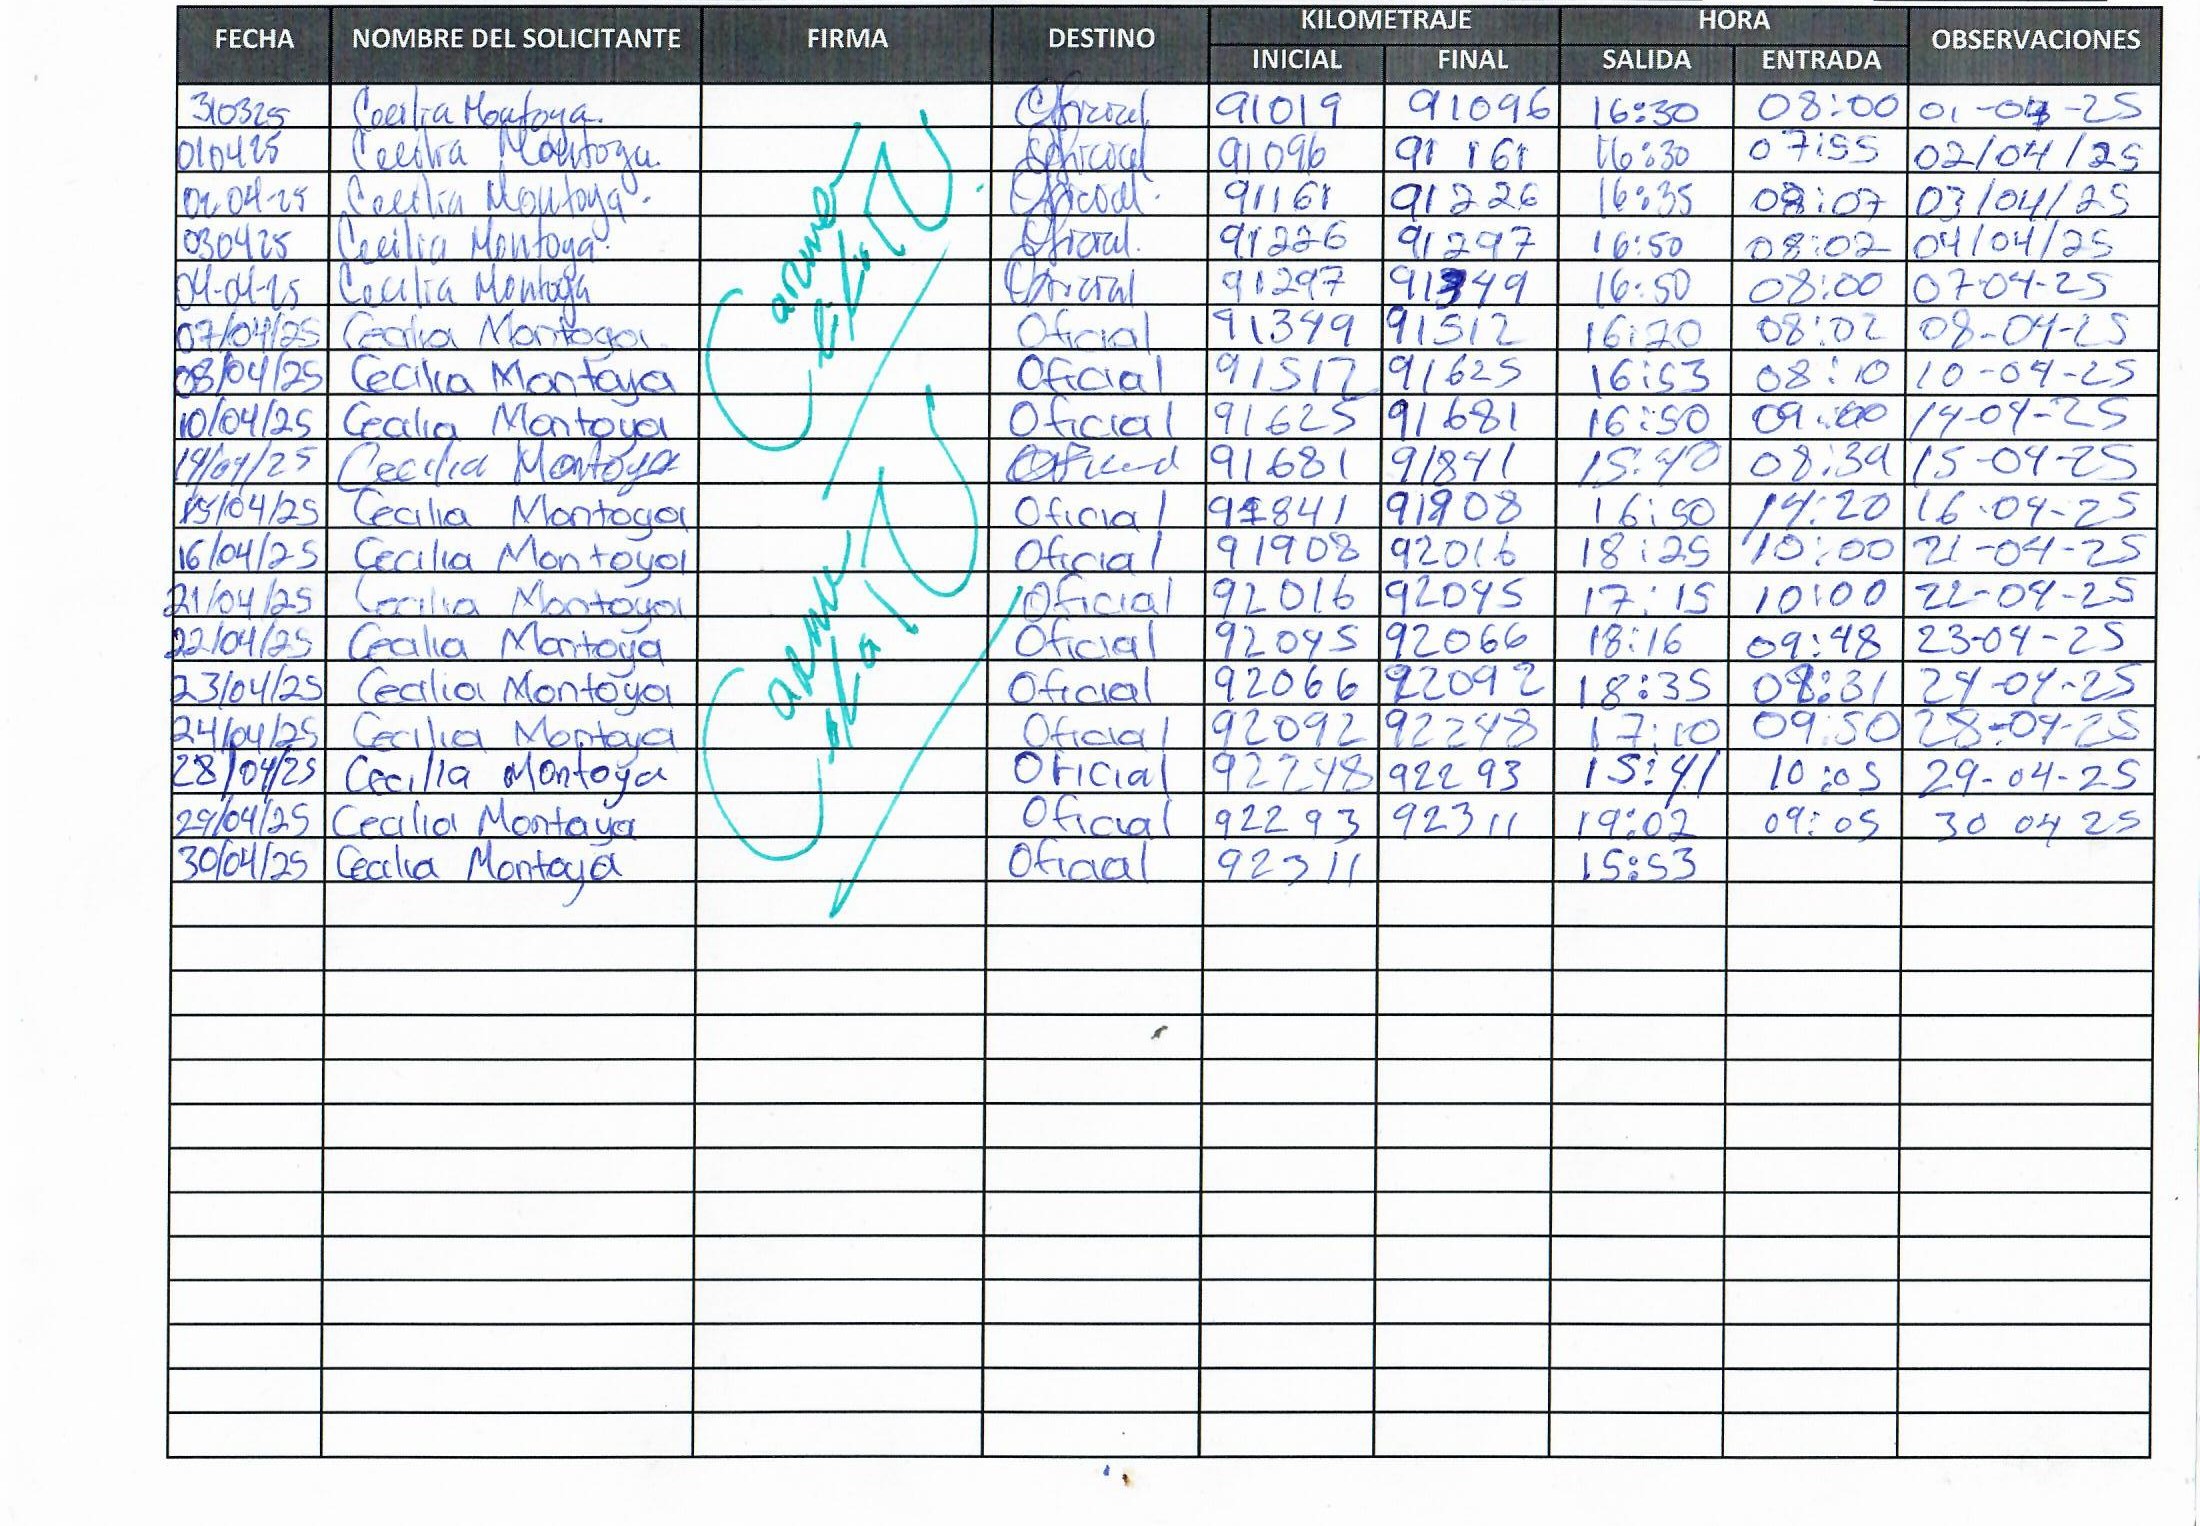 FECHA NOMBRE DEL SOLICITANTE FIRMA DESTINO KILOMETRAJE HORA OBSERVACIONES
INICIAL FINAL SALIDA ENTRADA
310325 Cecilia Montoya. Oficial 91019 91096 16:30 08:00 01-04-25
010425 Cecilia Montoya. Oficial 91096 91161 16:30 07:55 02/04/25
02-04-25 Cecilia Montoya. Oficial. 91161 91226 16:35 08:07 03/04/25
030425 Cecilia Montoya. Oficial. 91226 91297 16:50 08:02 04/04/25
04-04-25 Cecilia Montoya Oficial 91297 91349 16:50 08:00 07-04-25
07/04/25 Cecilia Montoya Oficial 91349 91512 16:20 08:02 08-04-25
08/04/25 Cecilia Montoya Oficial 91512 91625 16:53 08:10 10-04-25
10/04/25 Cecilia Montoya Oficial 91625 91681 16:50 09:00 14-04-25
14/04/25 Cecilia Montoya Oficial 91681 91841 15:40 08:39 15-04-25
15/04/25 Cecilia Montoya Oficial 91841 91908 16:50 14:20 16-04-25
16/04/25 Cecilia Montoya Oficial 91908 92016 18:25 10:00 21-04-25
21/04/25 Cecilia Montoya Oficial 92016 92045 17:15 10:00 22-04-25
22/04/25 Cecilia Montoya Oficial 92045 92066 18:16 09:48 23-04-25
23/04/25 Cecilia Montoya Oficial 92066 92092 18:35 08:31 24-04-25
24/04/25 Cecilia Montoya Oficial 92092 92248 17:10 09:50 28-04-25
28/04/25 Cecilia Montoya Oficial 92248 92293 15:41 10:05 29-04-25
29/04/25 Cecilia Montoya Oficial 92293 92311 19:02 09:05 30 04 25
30/04/25 Cecilia Montoya Oficial 92311 15:53